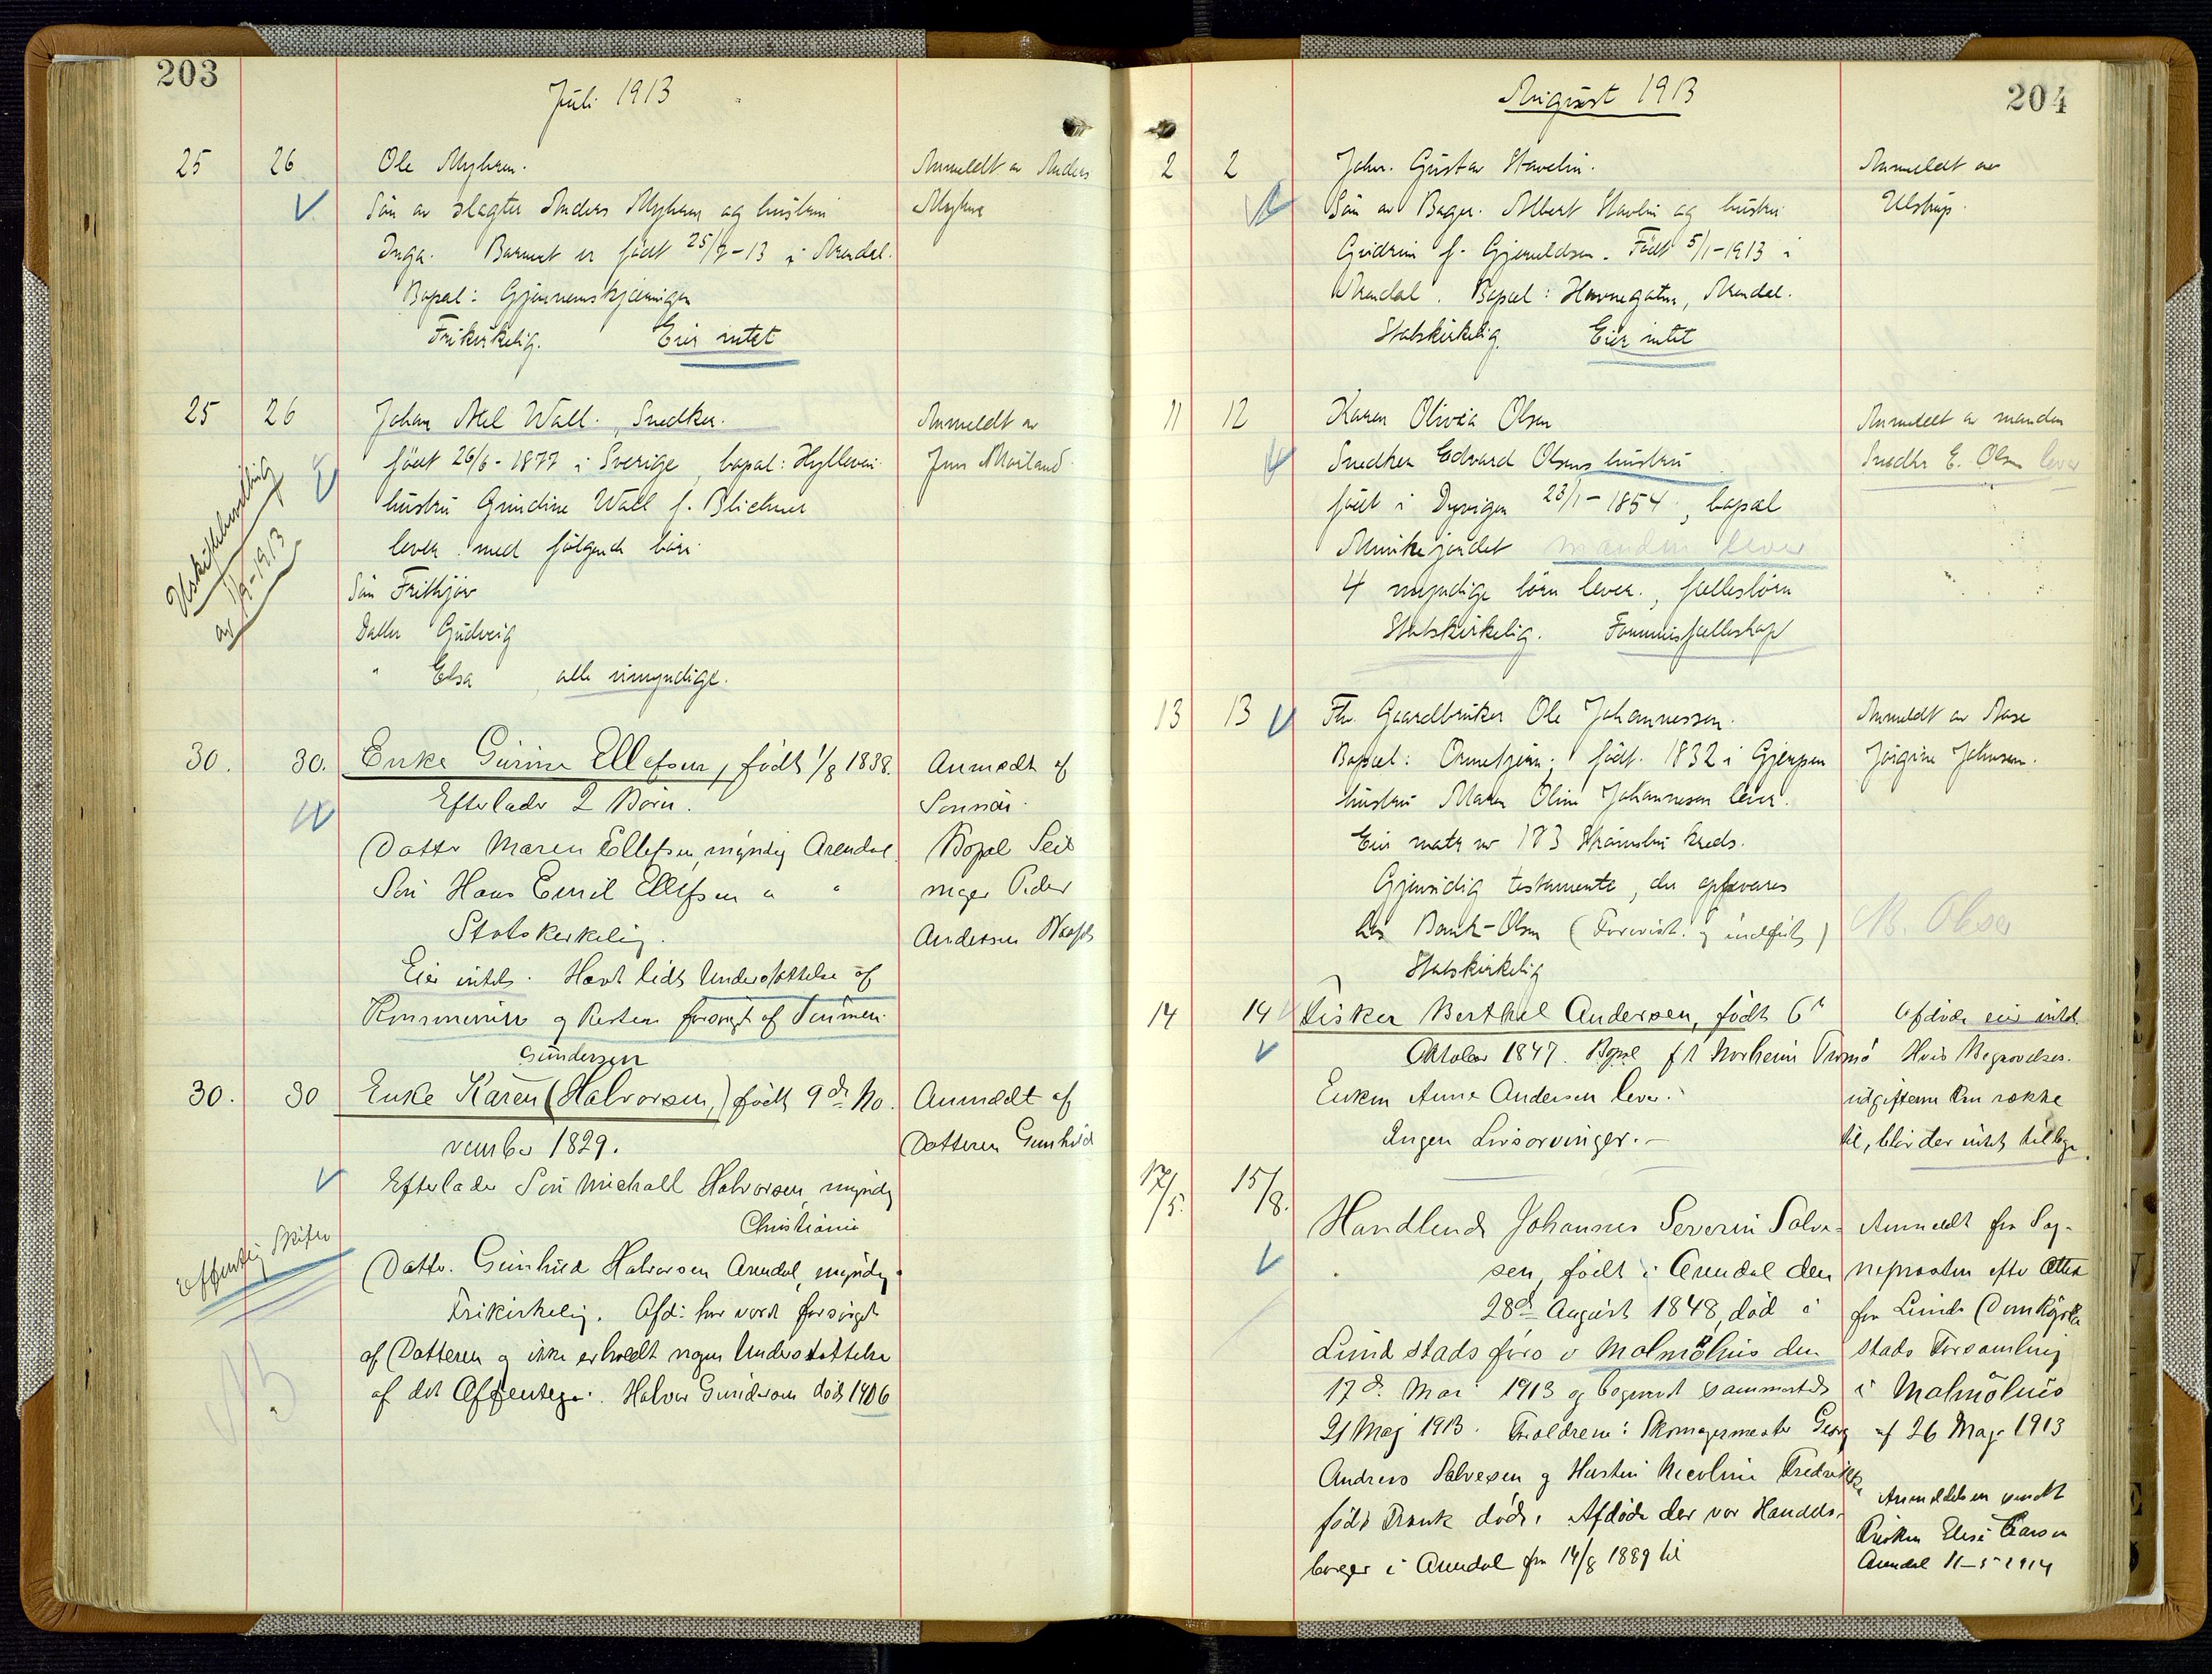 203
Juli 1913
25 26 Ole Myhren. Anmeldt av Anders
Søn av slagter Anders Myhren og hustru Myhre
Inga. Barnet er født 25/7-13 i Arendal.
Bopæl: Gjennemskjæringen
Frikirkelig. Eier intet
25 26 Johan Axel Wall. Snedker. Anmeldt av
født 26/6-1877 i Sverige, bopæl: Hylleveien Jens Mailand
hustru Gundine Wall f. Blichner
lever med følgende børn
Søn Frithjov
Datter Gudveig
" Elsa, alle umyndige.
Uskiftebevilling
av 1/9-1913
30. 30. Enke Gurine Ellefsen, født 1/8 1838. Anmeldt af
Efterlader 2 Børn. Sønnen.
Datter Maren Ellefsen, myndig Arendal. Bopæl Seil
Søn Hans Emil Ellefsen " " mager Peder
Statskirkelig. Andersen
Eier intet. Havt lidt Understøttelse af
Kommunen og Resten forsørget af Sønnen.
Gundersen
30. 30 Enke Karen (Halvorsen,) født 9de No. Anmeldt af
vember 1829. Datteren Gunhild
Efterlader Søn Michael Halvorsen, myndig
Christiania
Offentlig Skifte
Datter. Gunhild Halvorsen Arendal, myndig.
Frikirkelig. Afd: har vært forsørget
af Datteren og ikke erholdt nogen Understøttelse
af det Offentlige. Halvor Gundersen død 1906
204
August 1913
2 2 Johan Gustav Havelin. Anmeldt av
Søn av Bager. Albert Havlin og hustru Ulstrup.
Gudrun f. Gjeruldsen. Født 5/1-1913 i
Arendal. Bopæl: Havnegaten, Arendal.
Statskirkelig. Eier intet
11 12 Karen Olivia Olsen Anmeldt av manden
Snedker Edvard Olsens hustru Snedker E. Olsen lever
født i Dyvigen 23/1-1854, bopæl
Munkejordet manden lever
4 myndige børn lever., fællesbørn
Statskirkelig. Formuesfælleskap
13 13 Fhv. Gaardbruker Ole Johannessen. Anmeldt av Aase
Bopæl: født. 1832 i Gjerpen Jørgine Johnsen.
hustru Maren Oline Johannesen lever.
Eier matr nr 173 kreds.
Gjensidig testamente, der opbevares
hos Bank-Olsen M. Olsen
Statskirkelig
14 14 Fisker Berthel Andersen, født 6te Afdøde eier intet.
Oktober 1847. Bopæl Norheim Tromø Hvis Begravelses-
Enken Anne Andersen lever. udgifterne kun række
Ingen Livsarvinger.- til, blir der intet tilbage.
17/5. 15/8. Handlende Johannes Severin Salve- Anmeldt fra Sog-
sen, født i Arendal den nepresten efter Attest
28de August 1848, død i fra Lunds Domkyrko
Lund stads förs o Malmöhus den stads Forsamling
17de Mai 1913 og begravet sammesteds i Malmöhus
21 Maj 1913. Forældrene: Skomagermester Georg af 26 Maj 1913
Andreas Salvesen og Hustru Nicoline Fredrikke,
født Drank døde. Afdøde der var Handels- Anmeldelsen sendt
borger i Arendal fra 14/8 1889 til Frøken Elise Larsen
Arendal 11-5-1914